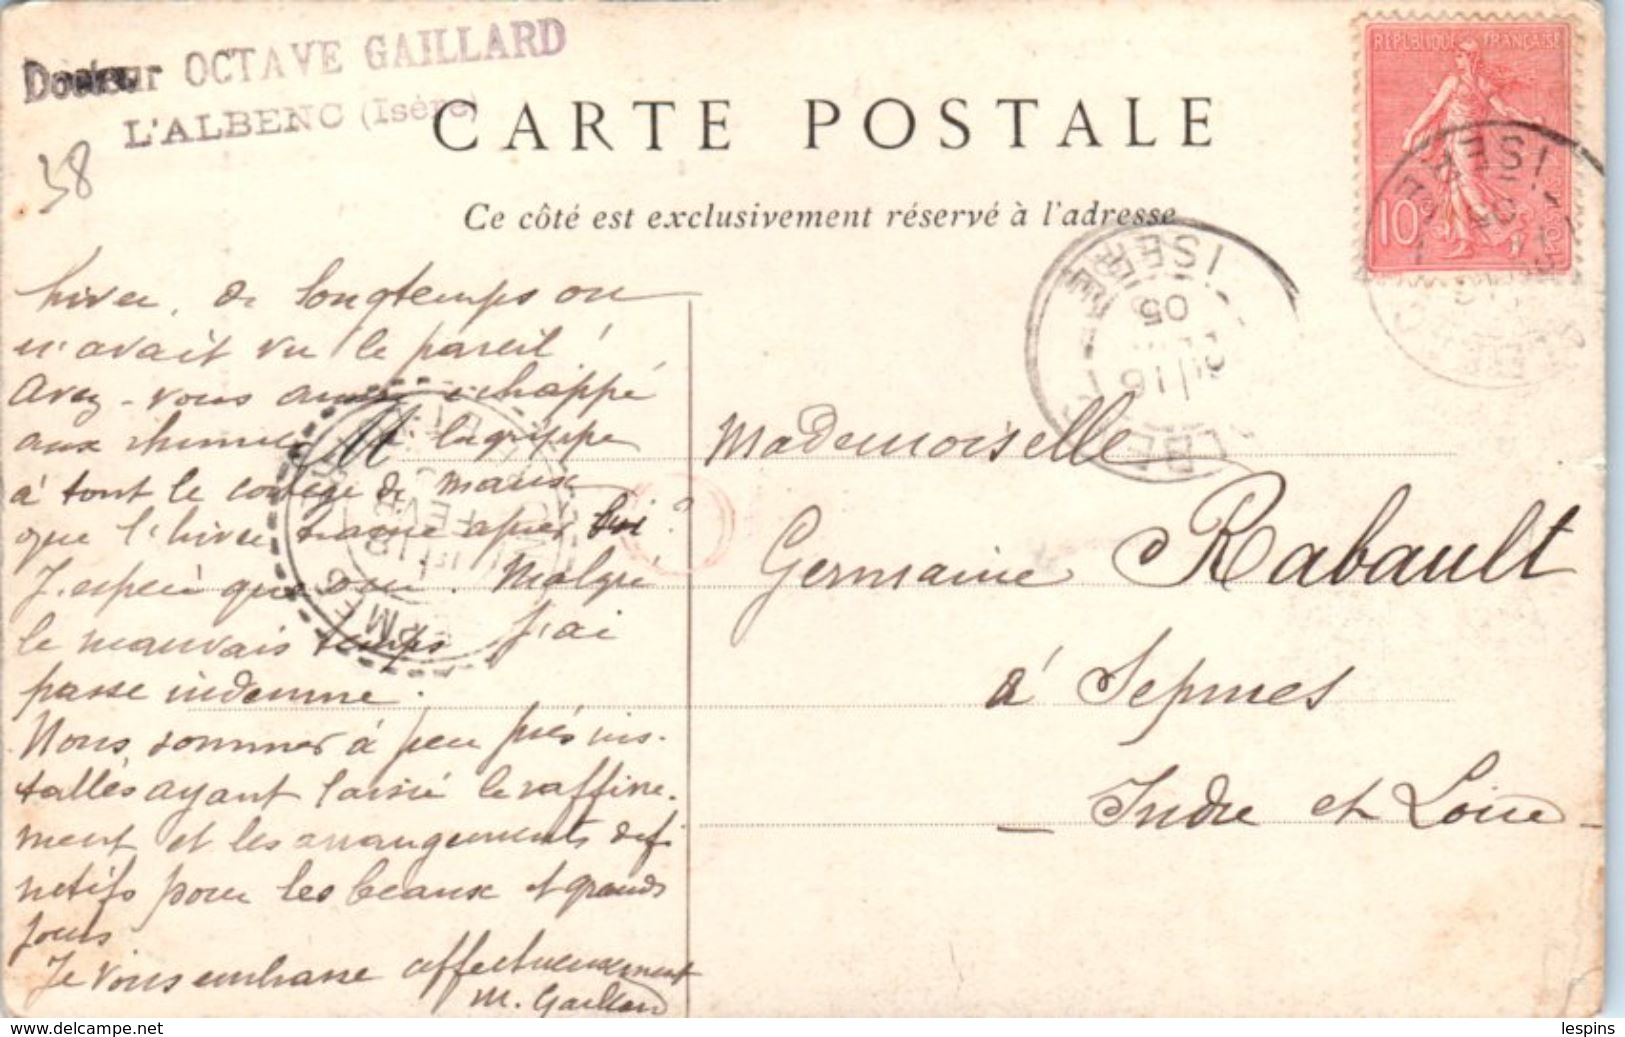 Docteur OCTAVE GAILLARD
L'ALBENC (Isère)
38
CARTE POSTALE
Ce côté est exclusivement réservé à l'adresse
REPUBLIQUE FRANÇAISE
10c
ISERE
05
ISERE
16
05
hiver, de longtemps on
n'avait vu le pareil!
Avez-vous échappé
aux rhumes, à la grippe
à tout le cortège de maux
que l'hiver traîne après lui?
J'espère que oui. Malgré
le mauvais temps j'ai
passé indemne.
Nous sommes à peu près ins-
tallés ayant laissé le raffine-
ment et les arrangements défi
nitifs pour les beaux et grands
jours.
Je vous embrasse affectueusement
M. Gaillard
Mademoiselle
Germaine Rabault
à Sepmes
- Indre et Loire -
www.delcampe.net
lespins